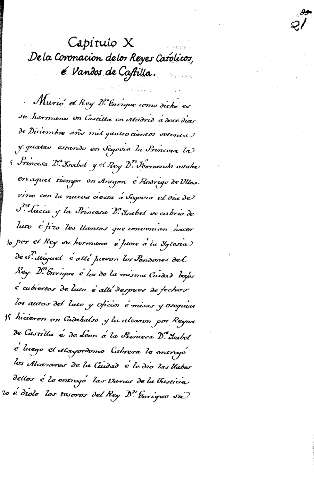 21
Capitulo X
De la Coronacion de los Reyes Catolicos,
é Vandos de Castilla.
Murió el Rey Dn. Enrique como dicho es
su hermano en Castilla en Madrid á doce dias
de Diciembre año mil quatrocientos setenta
y quatro estando en Segovia la Princesa la
5 Princesa Da. Isabel y el Rey Dn. Fernando estaba
en aquel tiempo en Aragon é Rodrigo de Ulloa
vino con la nueva cierta á Segovia el dia de
Sta. Lucia y la Princesa Da. Isabel se cubrio de
luto é fizo los llantos que convenian hacer
10 por el Rey su hermano é fuese á la Iglesia
de Sn. Miguel é alli fueron los Pendones del
Rey Dn. Enrique é los de la misma Ciudad bajos
é cubiertos de luto é alli despues de fechos
los autos del luto y oficios é misas y exequias
15 hicieron un Cadahalso y la alzaron por Reyna
de Castilla é de Leon á la Princesa Da. Isabel
é luego el Mayordomo Cabrera le entregó
los Alcazares de la Ciudad é le dio las llabes
dellos é le entregó las Varas de la Justicia
20 é diole los tesoros del Rey Dn. Enrique su